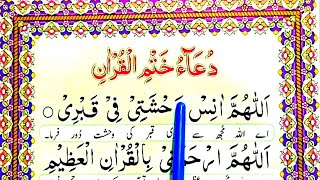 دُعَآءُ خَتْمِ الْقُرْاٰنِ
اَللّٰهُمَّ اٰنِسْ وَحْشَتِیْ فِیْ قَبْرِیْ ○
اے اللہ مجھ سے میری قبر کی وحشت دور فرما۔
اَللّٰهُمَّ ارْحَمْنِیْ بِالْقُرْاٰنِ الْعَظِیْمِ